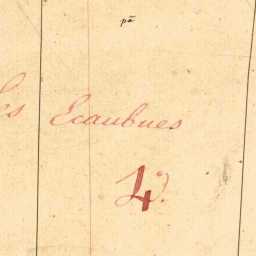 pᵉ
les Ecaubues
4